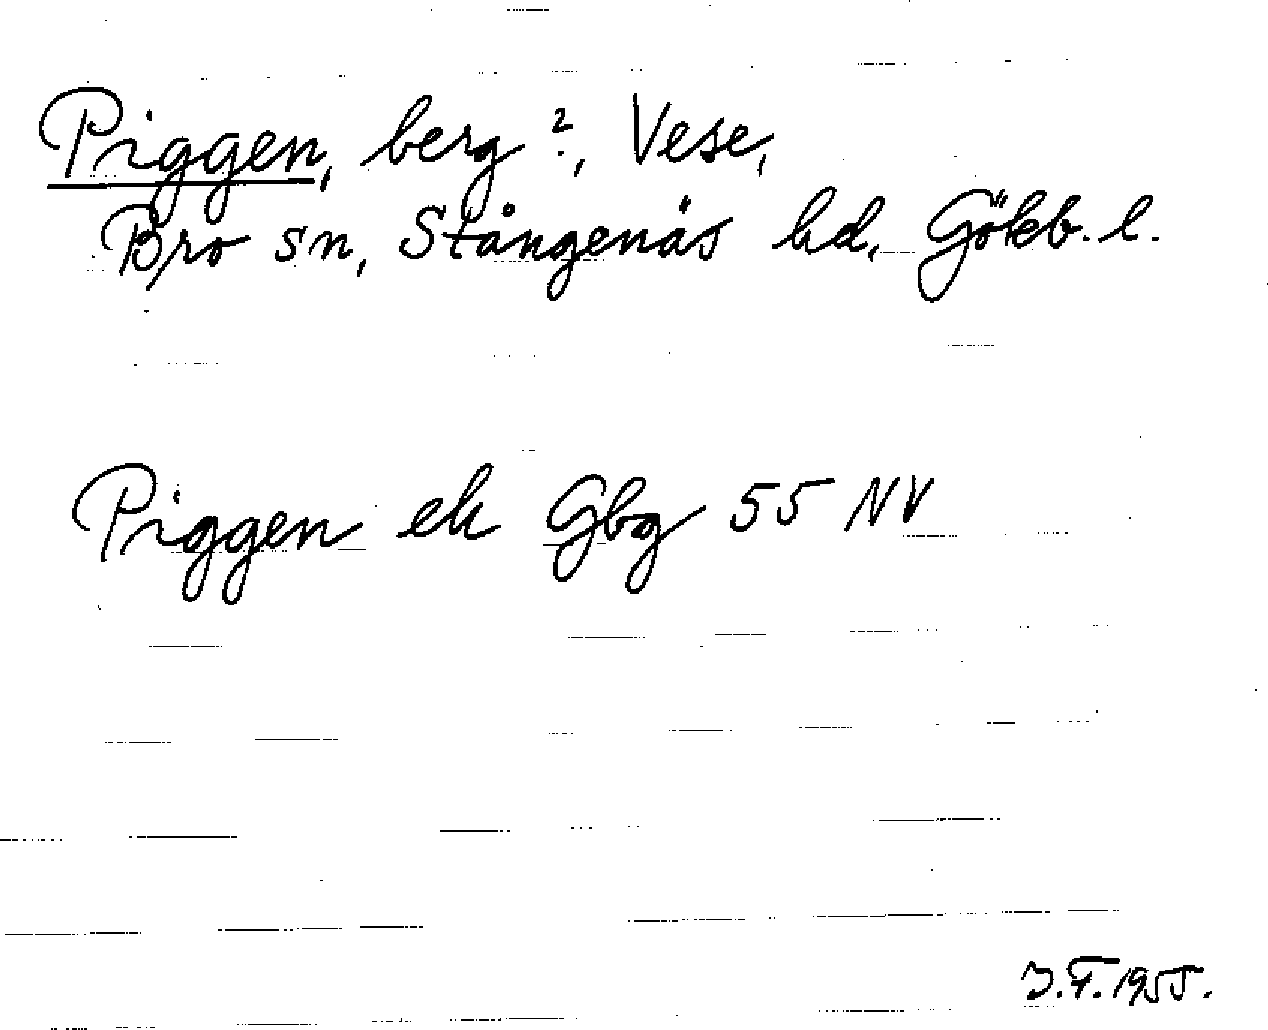 Piggen, berg ?, Vese,
Bro sn, Stångenäs hd, Gökb. l.
Piggen ek Gbg 55 NV
J.F. 1955.